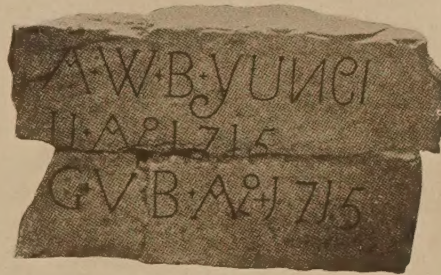 A·W·B·YUNEI
11·Aº·1715
G·V·B·Aº·1715